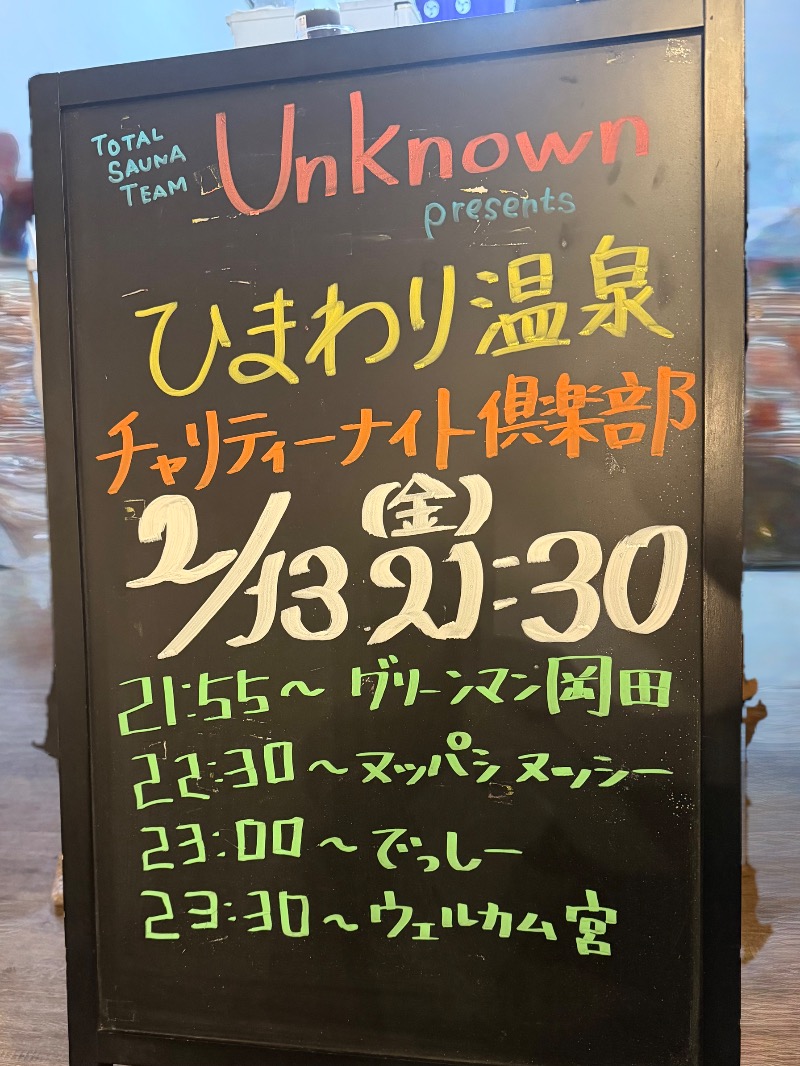 TOTAL
SAUNA
TEAM
Unknown
presents
ひまわり温泉
チャリティーナイト倶楽部
2/13(金)21:30
21:55〜 グリーンマン岡田
22:30〜ヌッパシヌーシー
23:00〜でっしー
23:30〜ウェルカム宮